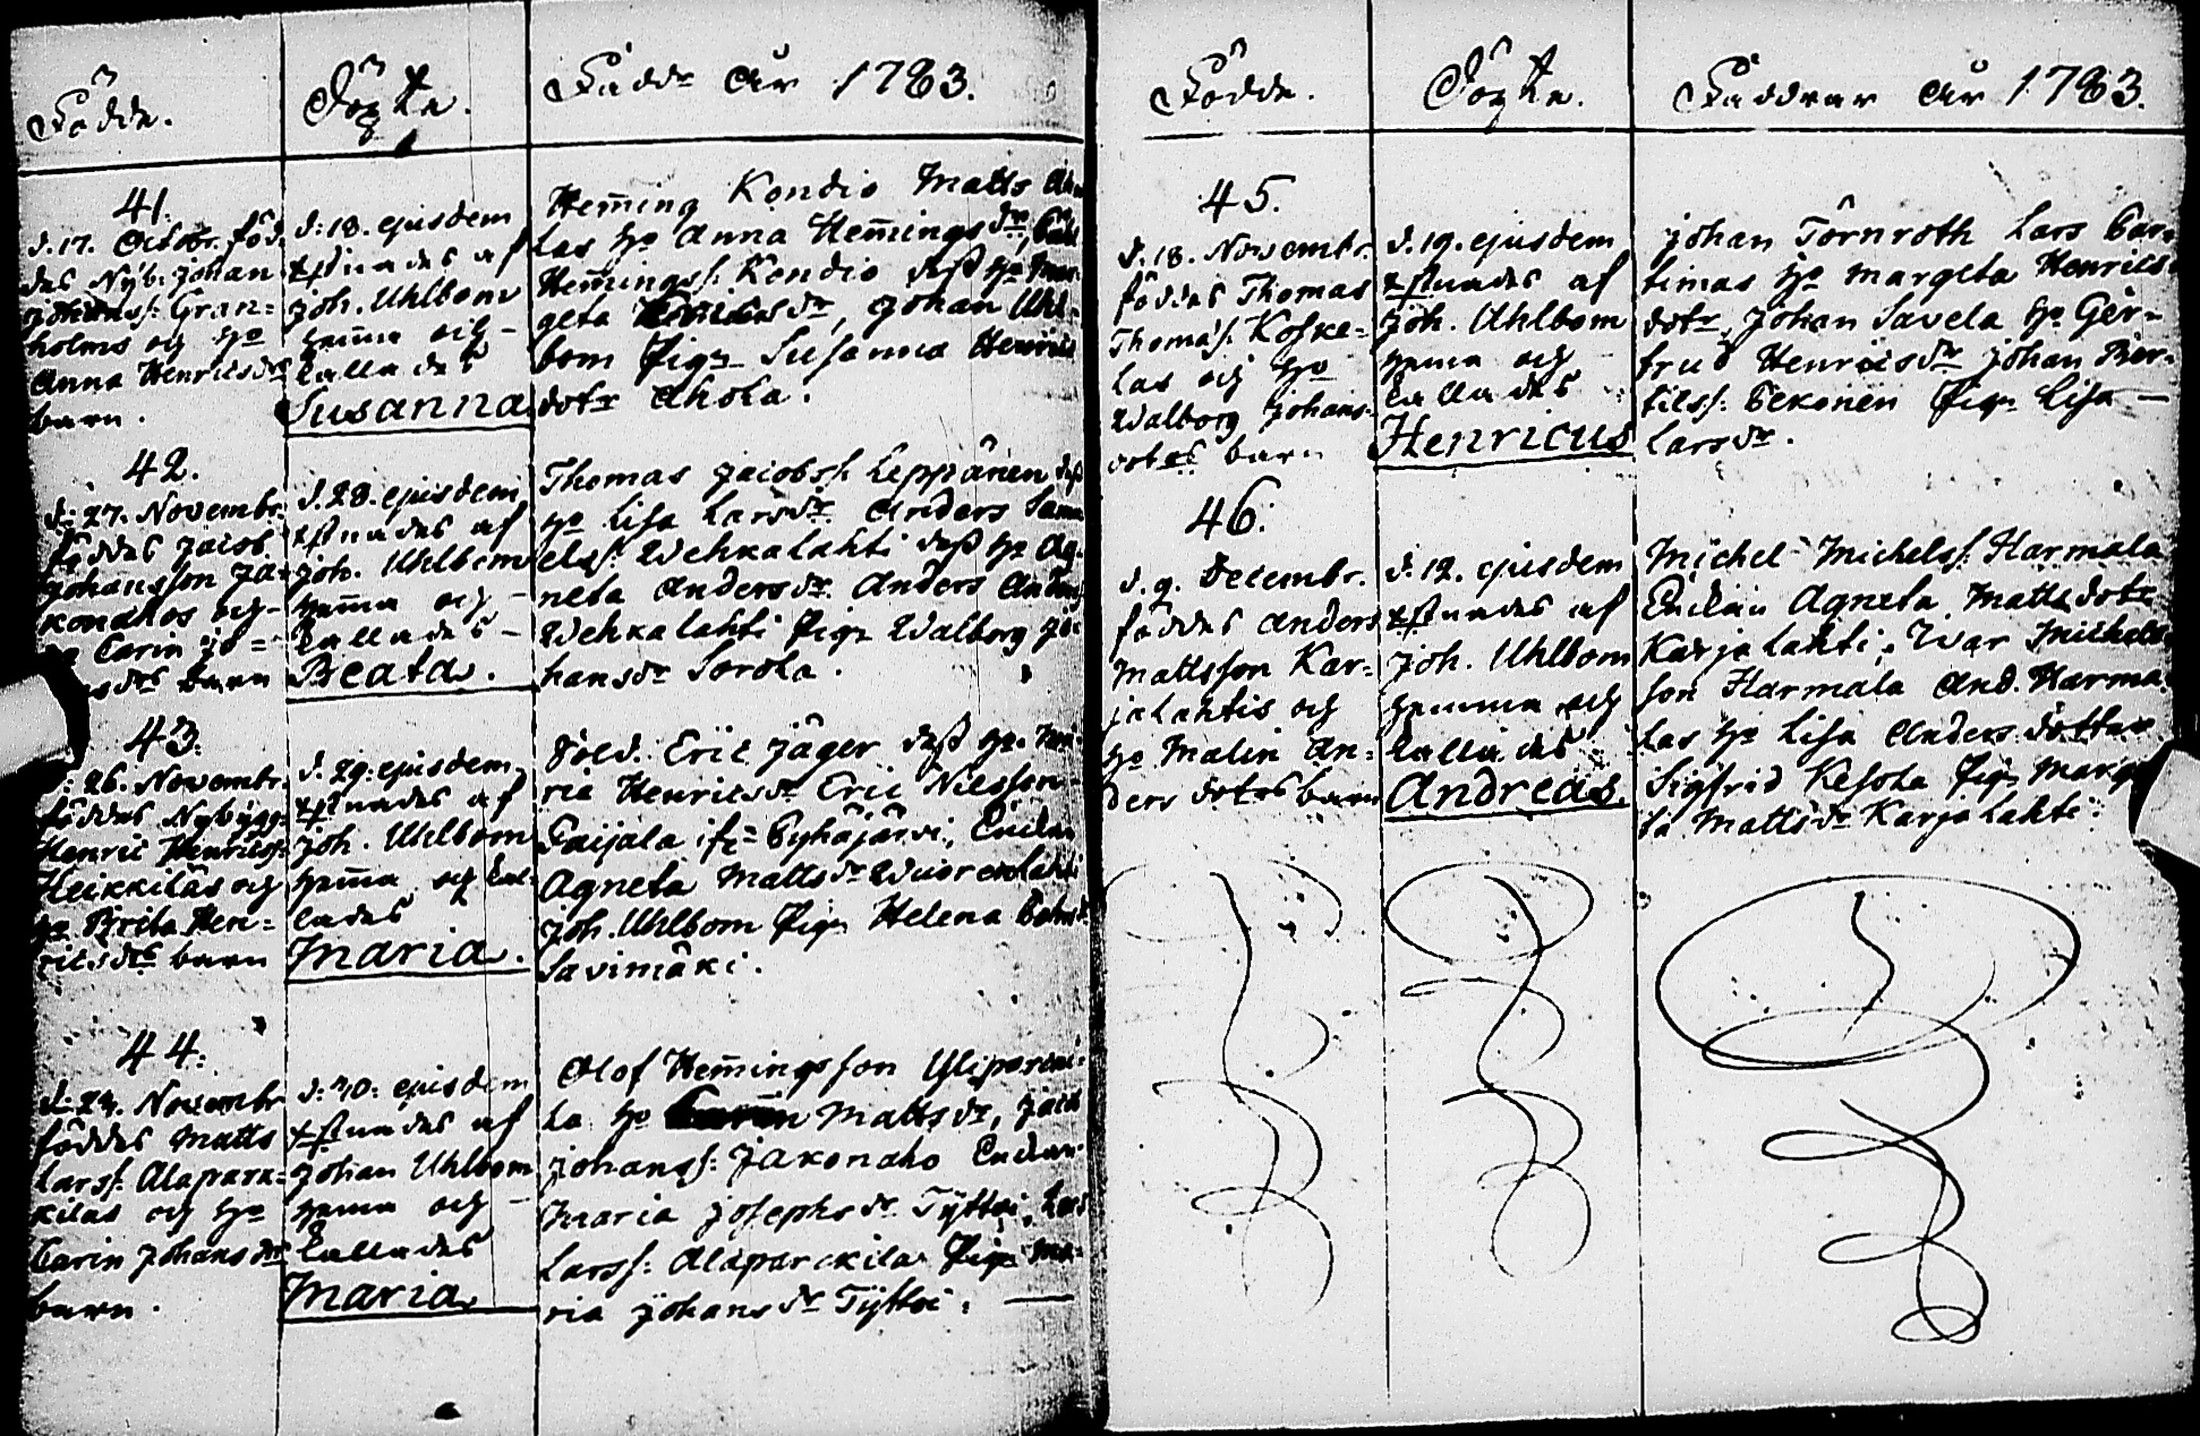 Födde.
Döpte.
Fadd:r År 1783.
41.
d. 17. Octobr. föd-
des Nyb. Johan
Johanss: Gran-
holms och h:o
Anna Henricsdrs
barn.
d: 18. ejusdem
xstnades af
Joh. Uhlbom
hem̄a och -
kallades
Susanna
Hem̄ing Kondio Matts
las h:o Anna Hem̄ingsdr,
Hem̄ingss: Kondio dess h:o Mar-
geta dr, Johan Uhl-
bom Pig. Susanna Henrics
dotr Ahola.
42.
d: 27. Novembr.
föddes Jacob
Johansson Ja-
konahos och -
h:o Carin Jo-
drs barn
d. 28. ejusdem
xstnades af
Joh. Uhlbom
hem̄a och -
kallades -
Beata.
Thomas Jacobss. Leppänen dess
h:o Lisa Larsdr. Anders Samu
elss: Wehkalahti dess h:o Ag-
neta Andersdr. Anders Anders
Wehkalahti Pig. Walborg Jo-
hansdr Sorola.
43.
d: 26. Novembr.
föddes Nybygg.
Henric Henricss:
Heikkiläs och
h:o Brita Hen-
ricsdrs barn
d. 29: ejusdem
xstnades af
Joh. Uhlbom
hem̄a och kal-
lades
Maria.
Sold. Eric Jäger dess h:o Ma-
ria Henricsdr Eric Nilsson
Paijala if: Pyhäjärvi, Enckan
Agneta Mattsdr Wuorenlahti
Joh. Uhlbom Pig. Helena
Savimäki.
44.
d: 24. Novembr
föddes Matts
Larss: Alapark-
kilas och h:o
Carin Johansdrs
barn.
d: 30: ejusdem
xstnades af
Johan Uhlbom
hem̄a och -
kallades
Maria
Olof Hem̄ingsson Yliparcki-
la h:o Carin Mattsdr, Jacob
Johanss: Jakonaho Enckan
Maria Josephsdr Tyttöi, Lars
Larss: Alaparckila Pig. Ma-
ria Johansdr Tyttöi.
Födde.
Döpte.
Faddrar År 1783.
45.
d. 18. Novembr.
föddes Thomas
Thomass. Koske-
las och h:o
Walborg Johans-
dotrs barn
d. 19. ejusdem
xstnades af
Joh. Uhlbom
hema och
kallades
Henricus
Johan Törnroth Lars Par-
timas h:o Margeta Henrics-
dotr, Johan Savela h:o Ger-
trud Henricsdr Johan Ber-
tilss: Pekonen Pig. Lisa -
Larsdr.
46.
d. 9. Decembr.
föddes Anders
Mattsson Kar-
jalahtis och
h:o Malin An-
ders dotrs barn
d. 12. ejusdem
xstnades af
Joh. Uhlbom
hemma och
kallades
Andreas.
Michel Michelss: Harmala
Enckan Agneta Mattsdotr
Karjalahti, Iwar Michels-
son Harmala And. Harma-
las h:o Lisa Anders dotter
Sigfrid Kesola Pig. Marge
ta Mattsdr Karjalahti.